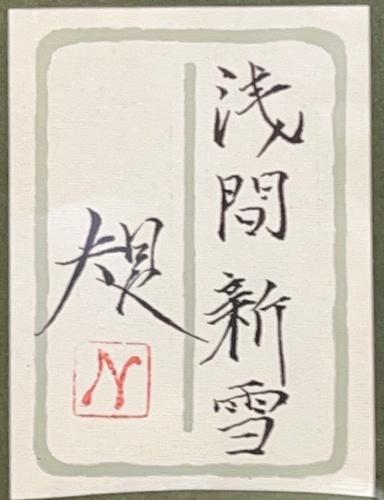 浅間新雪
規
N